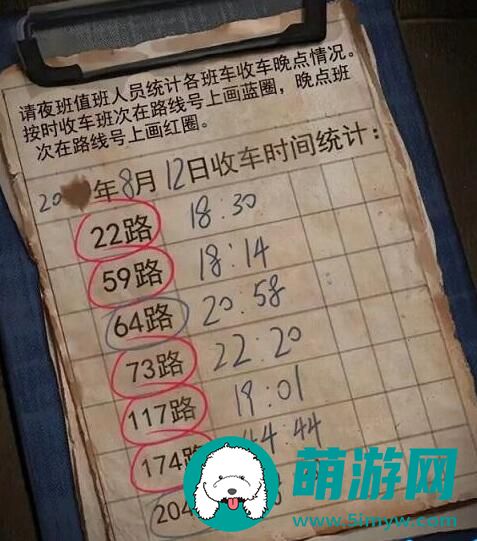 请夜班值班人员统计各班车收车晚点情况。
按时收车班次在路线号上画蓝圈，晚点班
次在路线号上画红圈。
20 年8月12日收车时间统计：
22路 18:30
59路 18:14
64路 20:58
73路 22:20
117路 19:01
174路 44:44
204
萌游网
www.5imyw.com